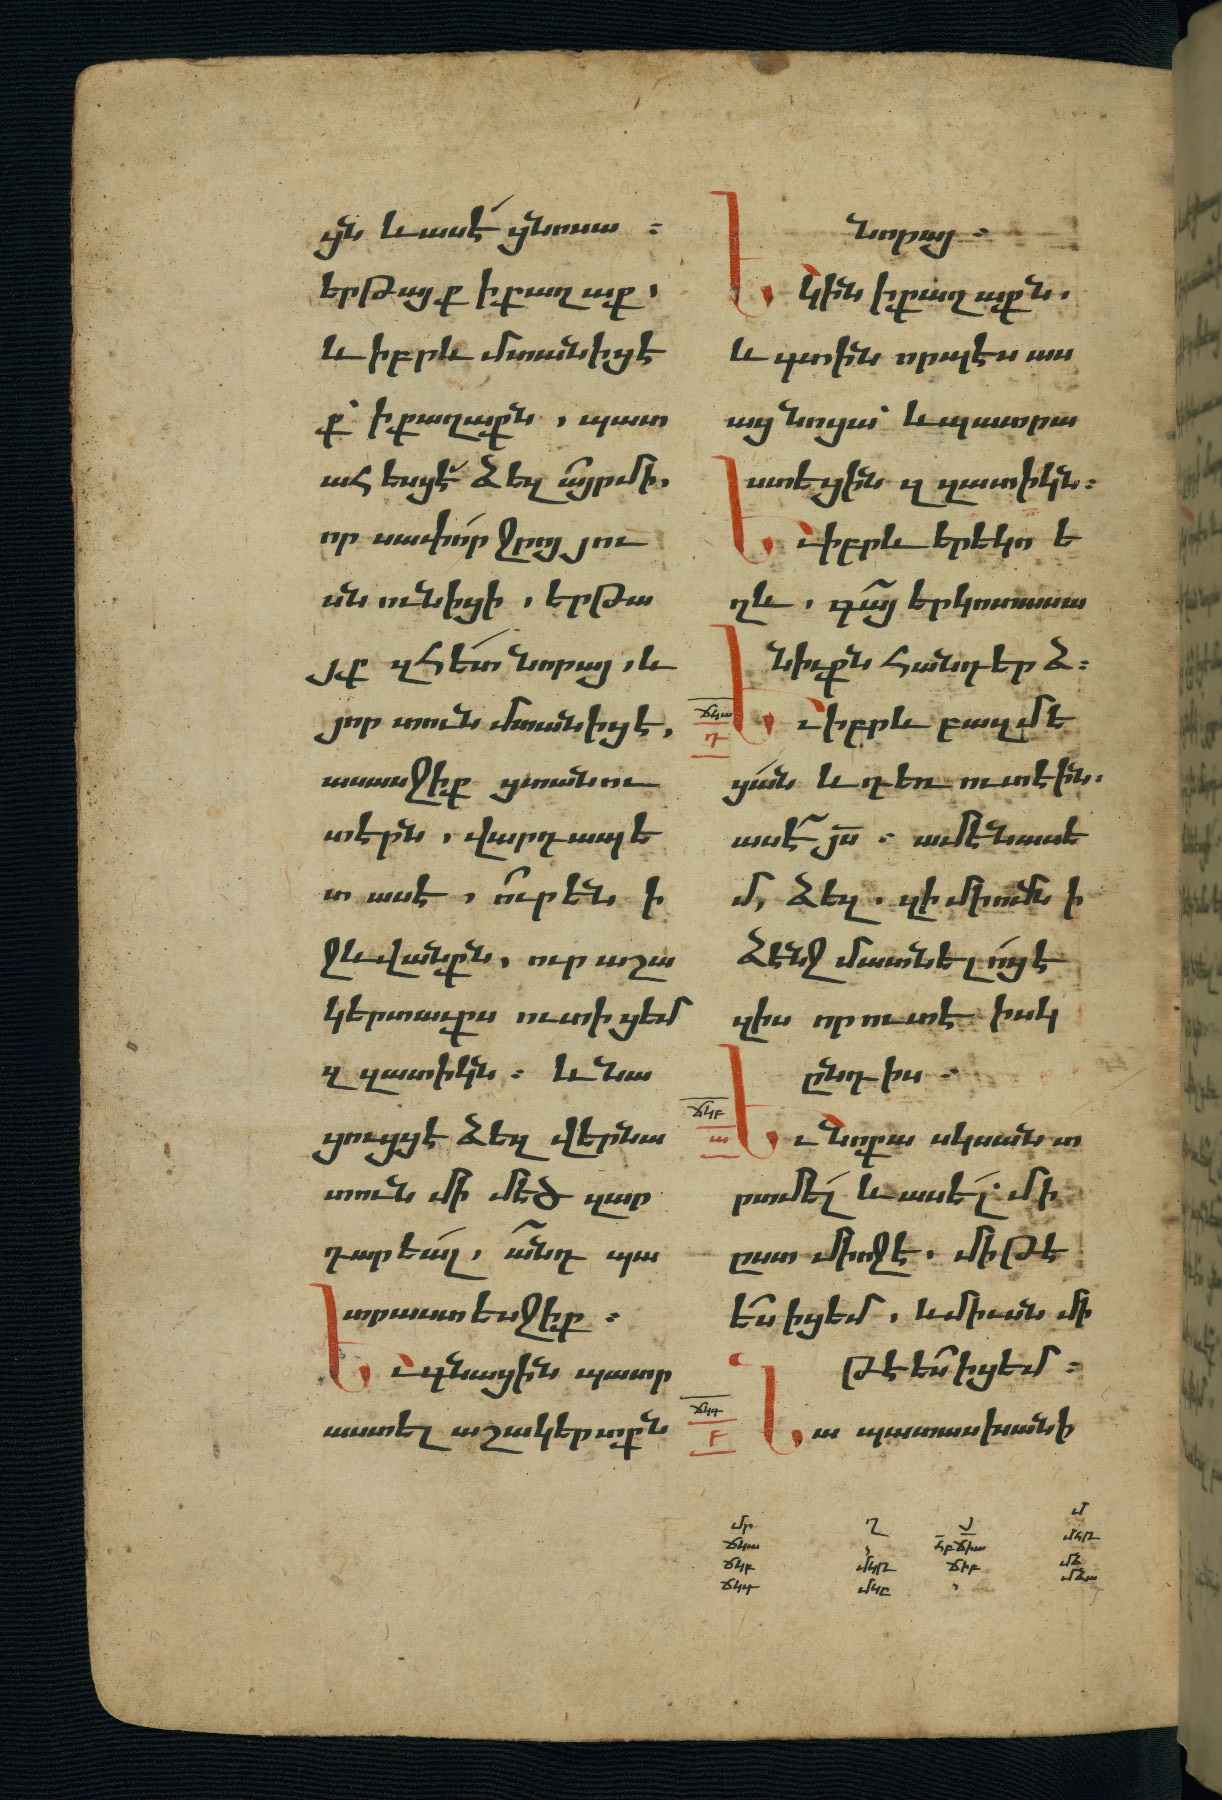 ցն և ասէ ցնոսա ։
երթայք ի քաղաք ,
և իբրև մտանիցէ
ք՝ ի քաղաքն , պատ
ահեսցէ ձեզ այր մի ,
որ սափոր ջրոյ յու
սն ունիցի , երթա
յք զհետ նորայ , և
յոր տուն մտանիցէ ,
ասասջիք ցտանու
տէրն , վարդապե
տ ասէ , ուր են ի
ջևվանքն , ուր աշա
կերտաւքս ուտիցեմ
զզատիկն ։ և նա
ցուցցէ ձեզ վերնա
տուն մի մեծ զար
դարեալ , անդ պա
տրաստեսջիք ։
Եւ գնացին պատր
աստել աշակերտքն
նորայ ։
Եկին ի քաղաքն ,
և գտին որպէս աս
աց նոցա՝ և պատրա
ստեցին զզատիկն ։
Եւ իբրև երեկո ե
ղև , գայ երկոտասա
նիւքն հանդերձ ։
ճկա
դ
Եւ իբրև բազմե
ցան և դեռ ուտէին ։
ասէ յս ։ ամէն ասե
մ, ձեզ . զի մի ոմն ի
ձէնջ մատնելոց է
զիս որ ուտէ իսկ
ընդ իս ։
ճկբ
ա
Եւ նոքա սկսան տ
րտմել և ասել՝ մի
ըստ միոջէ . մի թէ
ես իցեմ , և միւսն մի
թէ ես իցեմ ։
ճկգ
բ
Նա պատասխանի
մր
ճկա
ճկբ
ճկգ
ղ
մկռ
մկը
յ
հբ ճիա
ճիբ
մ
մկռ
մձ
մձա